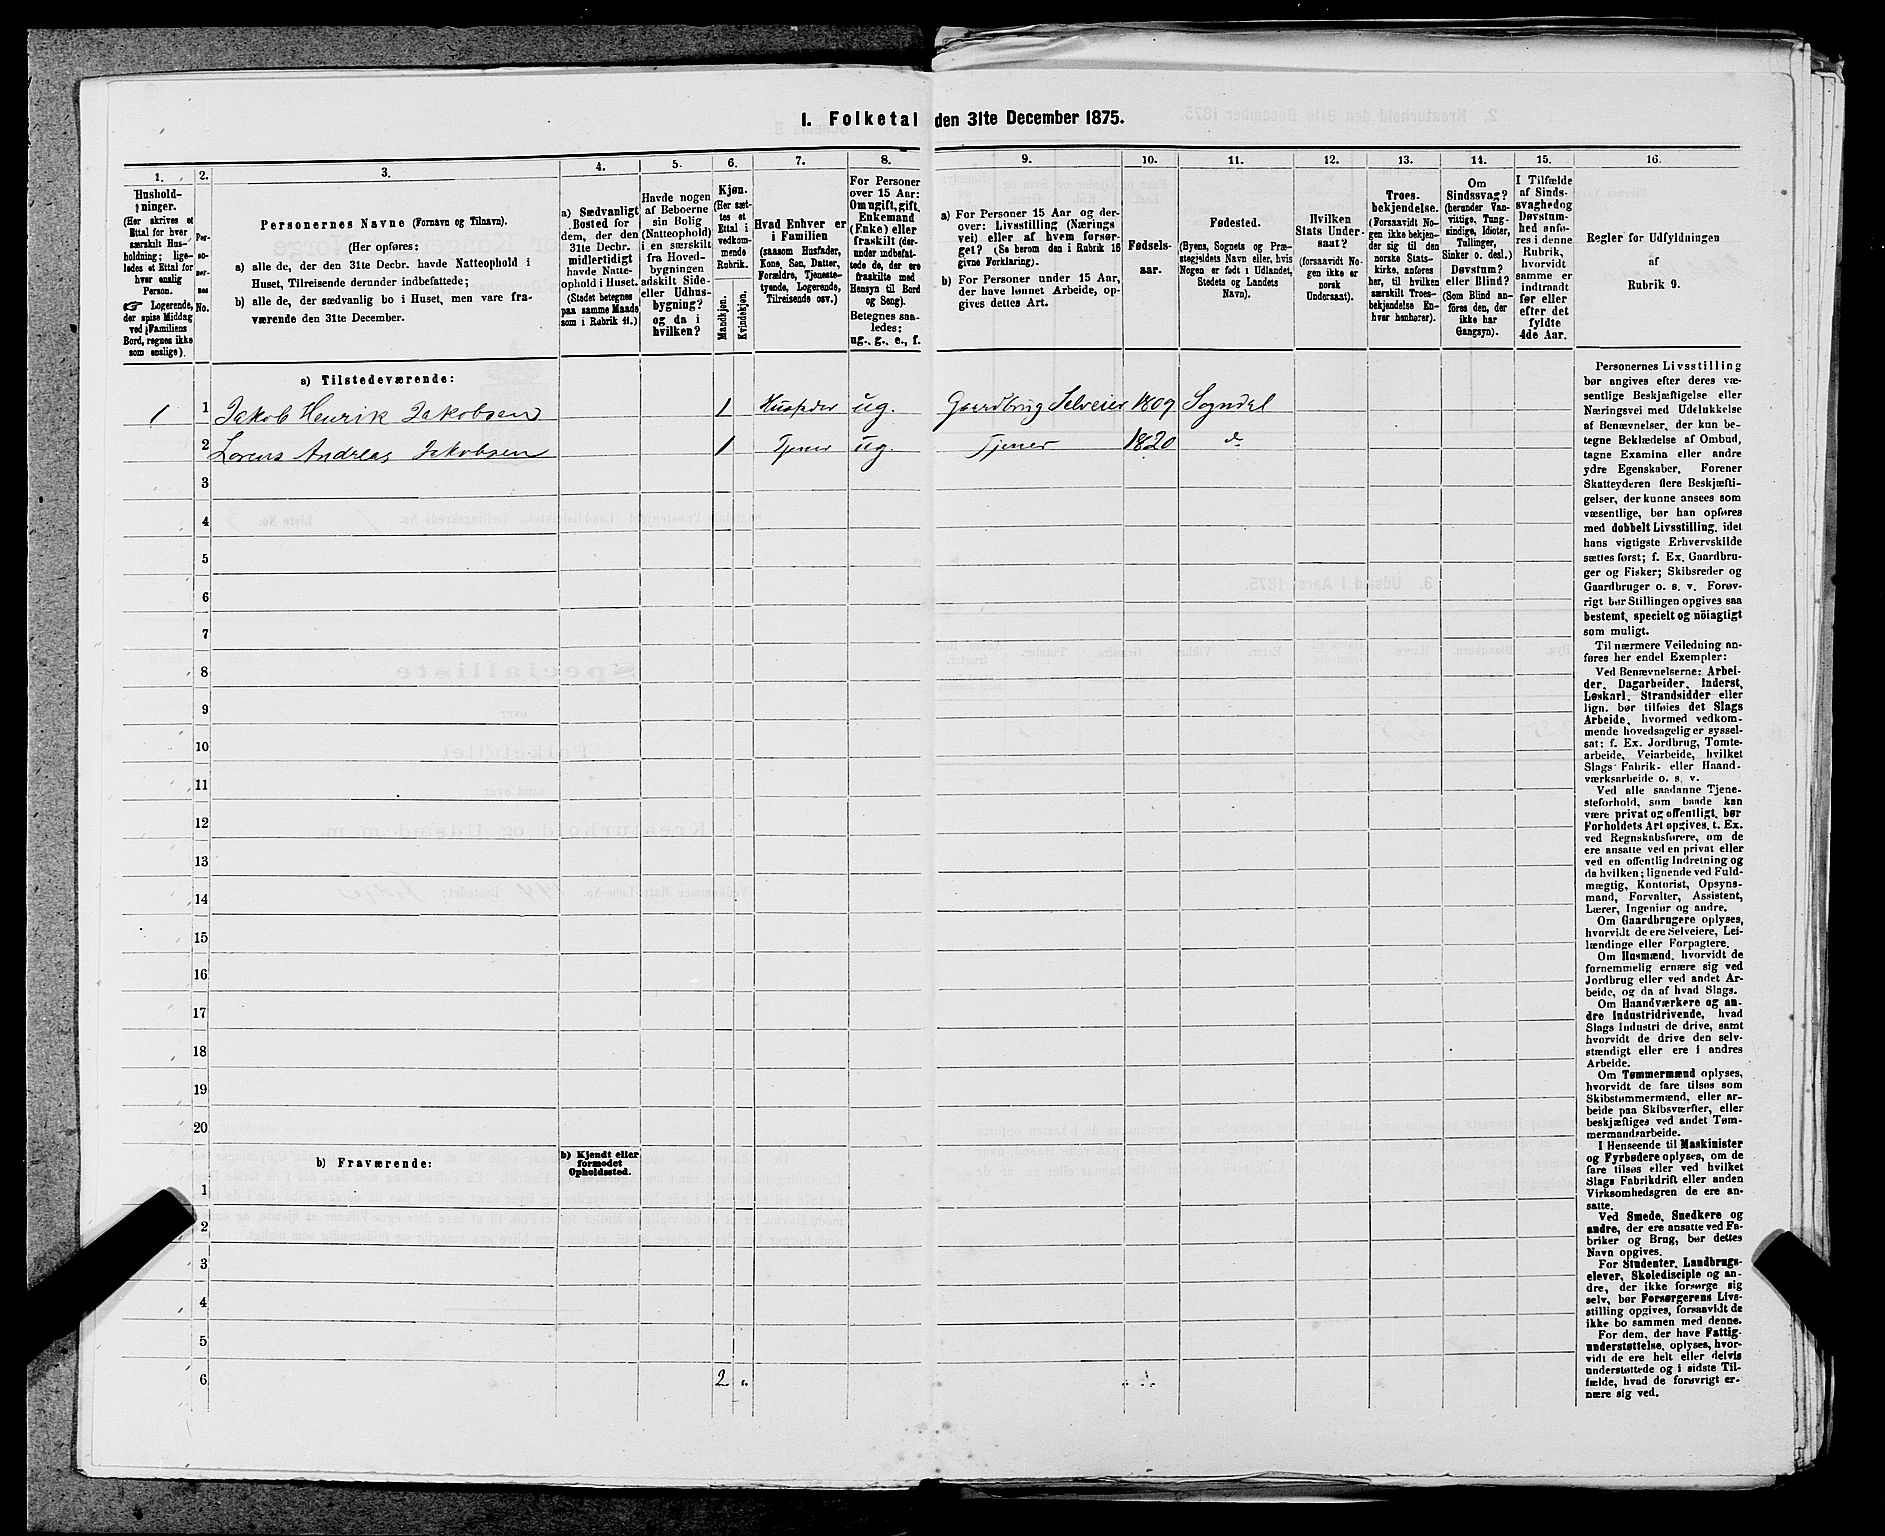 I. Folketal den 31te December 1875.
1. 2. 3. 4. 5. 6. 7. 8. 9. 10. 11. 12. 13. 14. 15. 16.
Hushold-
ninger.
(Her skrives et
Ettal for hver
særskilt Hus-
holdning; lige-
ledes et Ettal for
hver enslig
Person.
☞ Logerende,
der spise Middag
ved Familiens
Bord, regnes ikke
som enslige).
Per-
so-
ner-
nes
No.
Personernes Navne (Fornavn og Tilnavn).
(Her opføres:
a) alle de, der den 31te Decbr. havde Natteophold i
Huset, Tilreisende derunder indbefattede;
b) alle de, der sædvanlig bo i Huset, men vare fra-
værende den 31te December.
a) Sædvanligt
Bosted for
dem, der den
31te Decbr.
midlertidigt
havde Natte-
ophold i Huset.
(Stedet betegnes
paa samme Maade,
som i Rubrik 11.)
Havde nogen
af Beboerne
sin Bolig
(Natteophold)
i en særskilt
fra Hoved-
bygningen
adskilt Side-
eller Udhus-
bygning?
og da i
hvilken?
Kjøn.
(Her sæt-
tes et
Ettal i
vedkom-
mende
Rubrik.
Mandkjøn.
Kvindekjøn.
Hvad Enhver er
i Familien
(saasom Husfader,
Kone, Søn, Datter,
Forældre, Tjeneste-
tyende, Logerende,
Tilreisende osv.)
For Personer
over 15 Aar:
Om ugift, gift,
Enkemand
(Enke) eller
fraskilt (der-
under indbefat-
tede de, der ere
fraskilte med
Hensyn til Bord
og Seng).
Betegnes saa-
ledes:
ug., g., e., f.
a) For Personer 15 Aar og der-
over: Livsstilling (Nærings
vei) eller af hvem forsør-
get? (Se herom den i Rubrik 16
givne Forklaring).
b) For Personer under 15 Aar,
der have lønnet Arbeide, op-
gives dettes Art.
Fødsels-
aar.
Fødested.
(Byens, Sognets og Præ-
stegjeldets Navn eller, hvis
Nogen er født i Udlandet,
Stedets og Landets
Navn).
Hvilken
Stats Under-
saat?
(forsaavidt No-
gen ikke er
norsk
Undersaat).
Troes-
bekjendelse.
(Forsaavidt No-
gen ikke bekjen-
der sig til den
norske Stats-
kirke, anføres
her, til hvilken
særskilt Troes-
bekjendelse En-
hver henhører).
Om
Sindssvag?
(herunder Van-
vittige, Tung-
sindige, Idioter,
Tullinger,
Sinker o. desl.)
Døvstum?
eller Blind?
(Som Blind an-
føres den, der
ikke har
Gangsyn).
I Tilfælde
af Sinds-
svaghed og
Døvstum-
hed anfø-
res i denne
Rubrik,
hvorvidt
samme er
indtraadt
før eller
efter det
fyldte
4de Aar.
Regler for Udfyldningen
af
Rubrik 9.
a) Tilstedeværende:
1 1 Jakob Henrik Jakobsen 1 Husfader ug. Gaardbrug Selveier 1809 Sogndal
2 Lorens Andreas Jakobsen 1 Tjener ug. Tjener 1820 d.
3
4
5
6
7
8
9
10
11
12
13
14
15
16
17
18
19
20
b) Fraværende:
b) Kjendt eller
formodet
Opholdssted.
1
2
3
4
5
6 2
Personernes Livsstilling
bør angives efter deres væ-
sentlige Beskjæftigelse eller
Næringsvei med Udelukkelse
af Benævnelser, der kun be-
tegne Beklædelse af Ombud,
tagne Examina eller andre
ydre Egenskaber. Forener
Skatteyderen flere Beskjæfti-
gelser, der kunne ansees som
væsentlige, bør han opføres
med dobbelt Livsstilling, idet
hans vigtigste Erhvervskilde
sættes først; f. Ex. Gaardbru-
ger og Fisker; Skibsreder og
Gaardbruger o. s. v. Forøv-
rigt bør Stillingen opgives saa
bestemt, specielt og nöiagtigt
som muligt.
Til nærmere Veiledning an-
føres her endel Exempler:
Ved Benævnelserne: Arbei-
der, Dagarbeider, Inderst,
Løskarl, Strandsidder eller
lign. bør tilføies det Slags
Arbeide, hvormed vedkom-
mende hovedsagelig er syssel-
sat; f. Ex. Jordbrug, Tomte-
arbeide, Veiarbeide, hvilket
Slags Fabrik- eller Haand-
værksarbeide o. s. v.
Ved alle saadanne Tjene-
steforhold, som baade kan
være privat og offentligt, bør
Forholdets Art opgives, t. Ex.
ved Regnskabsførere, om de
ere ansatte ved en privat eller
ved en offentlig Indretning og
da hvilken; lignende ved Fuld-
mægtig, Kontorist, Opsyns-
mand, Forvalter, Assistent,
Lærer, Ingeniør og andre.
Om Gaardbrugere oplyses,
hvorvidt de ere Selveiere, Lei-
lændinge eller Forpagtere.
Om Husmænd, hvorvidt de
fornemmelig ernære sig ved
Jordbrug eller ved andet Ar-
beide, og da af hvad Slags.
Om Haandværkere og an-
dre Industridrivende, hvad
Slags Industri de drive, samt
hvorvidt de drive den selv-
stændigt eller ere i andres
Arbeide.
Om Tømmermænd oplyses,
hvorvidt de fare tilsøs som
Skibstømmermænd, eller ar-
beide paa Skibsværfter, eller
beskjæftiges ved andet Tøm-
mermandsarbeide.
I Henseende til Maskinister
og Fyrbødere oplyses, om de
fare tilsøs eller ved hvilket
Slags Fabrikdrift eller anden
Virksomhedsgren de ere an-
satte.
Ved Smede, Snedkere og
andre, der ere ansatte ved Fa-
briker og Brug, bør dettes
Navn opgives.
For Studenter, Landbrugs-
elever, Skoledisciple og an-
dre, der ikke forsørge sig
selv, bør Forsørgerens Livs-
stilling opgives, forsaavidt de
ikke bo sammen med denne.
For dem, der have Fattig-
understøttelse, oplyses, hvor-
vidt de ere helt eller delvis
understøttede og i sidste Til-
fælde, hvad de forøvrigt er-
nære sig ved.